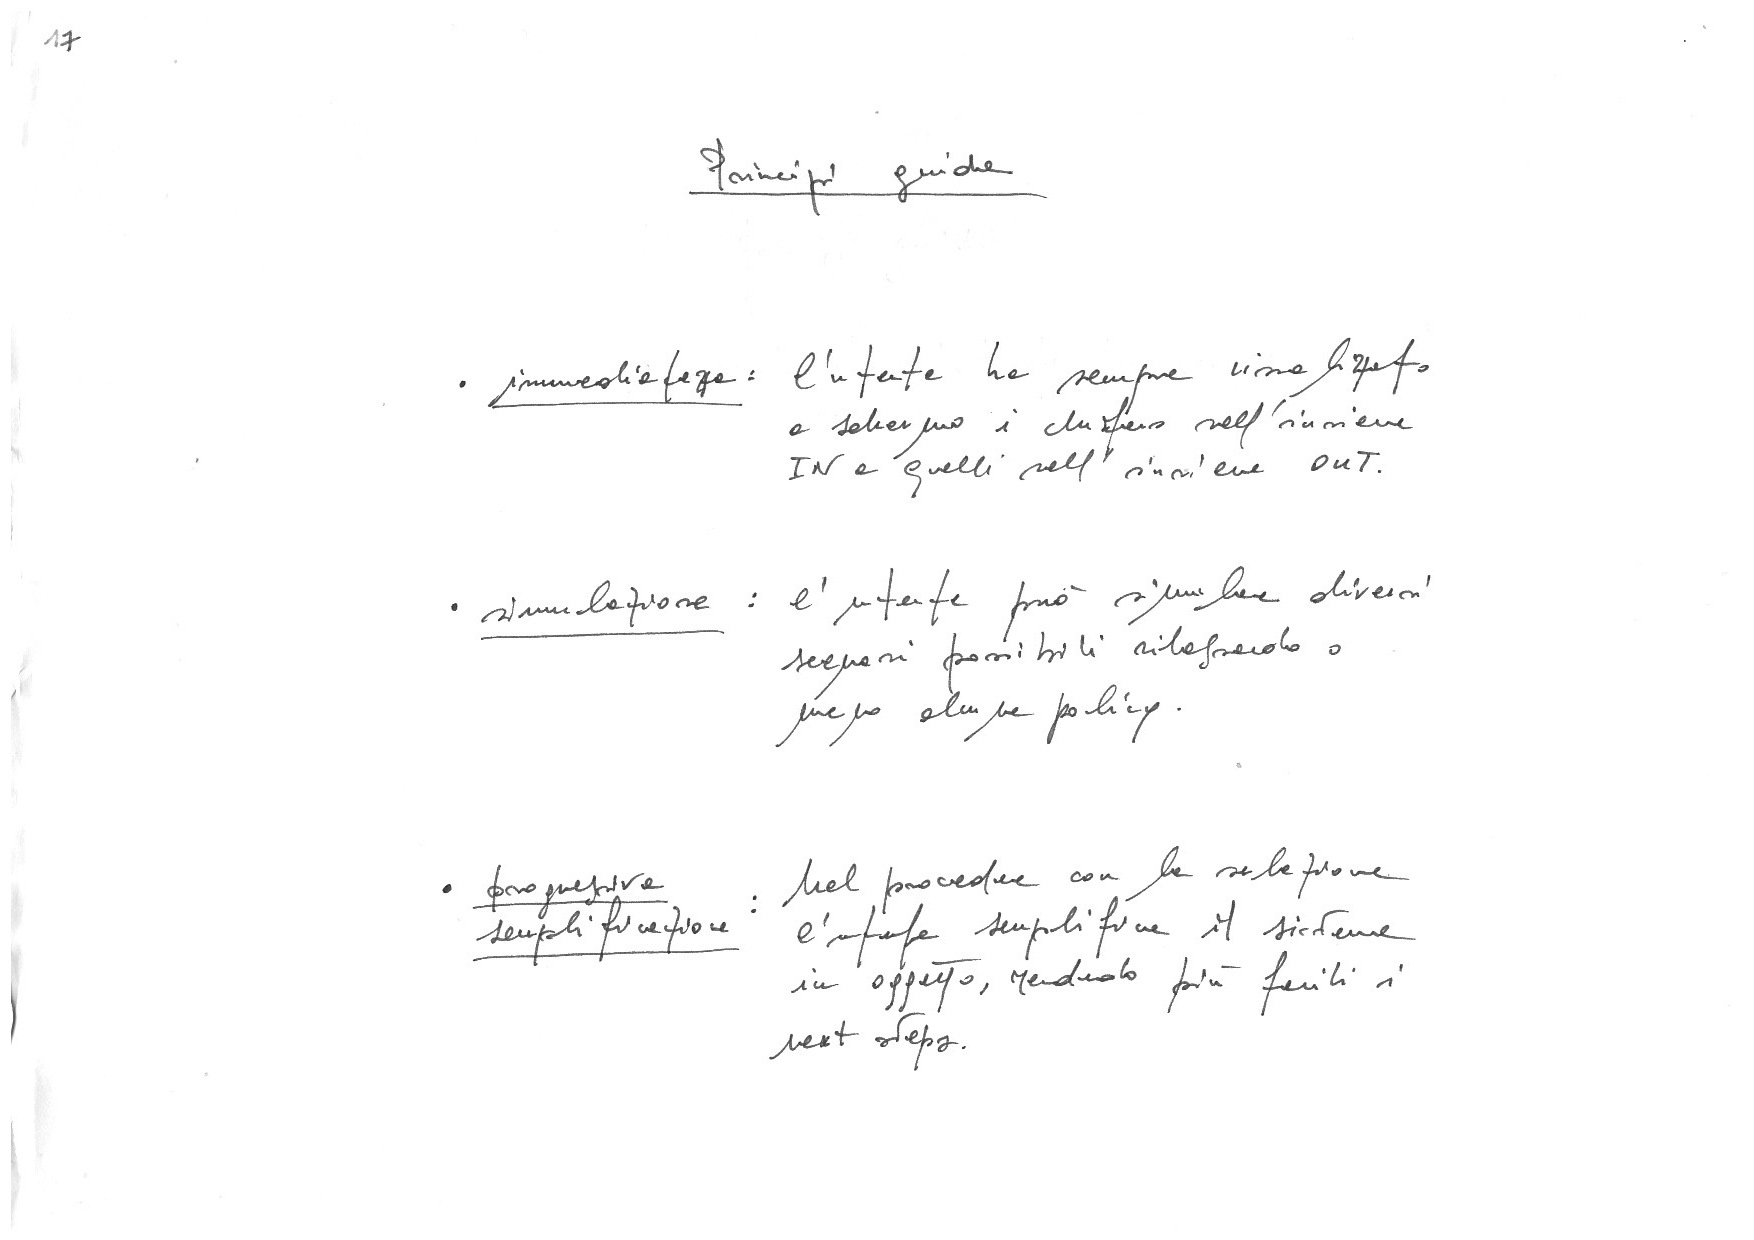 17
Principi guida
• immediatezza: l'utente ha sempre visualizzato
a schermo i clusters nell'insieme
IN e quelli nell'insieme OUT.
• simulazione: l'utente può simulare diversi
scenari possibili rilassando o
meno alcune policy.
• progressiva
semplificazione: Nel procedere con la selezione
l'utente semplifica il sistema
in oggetto, rendendo più facili i
next steps.